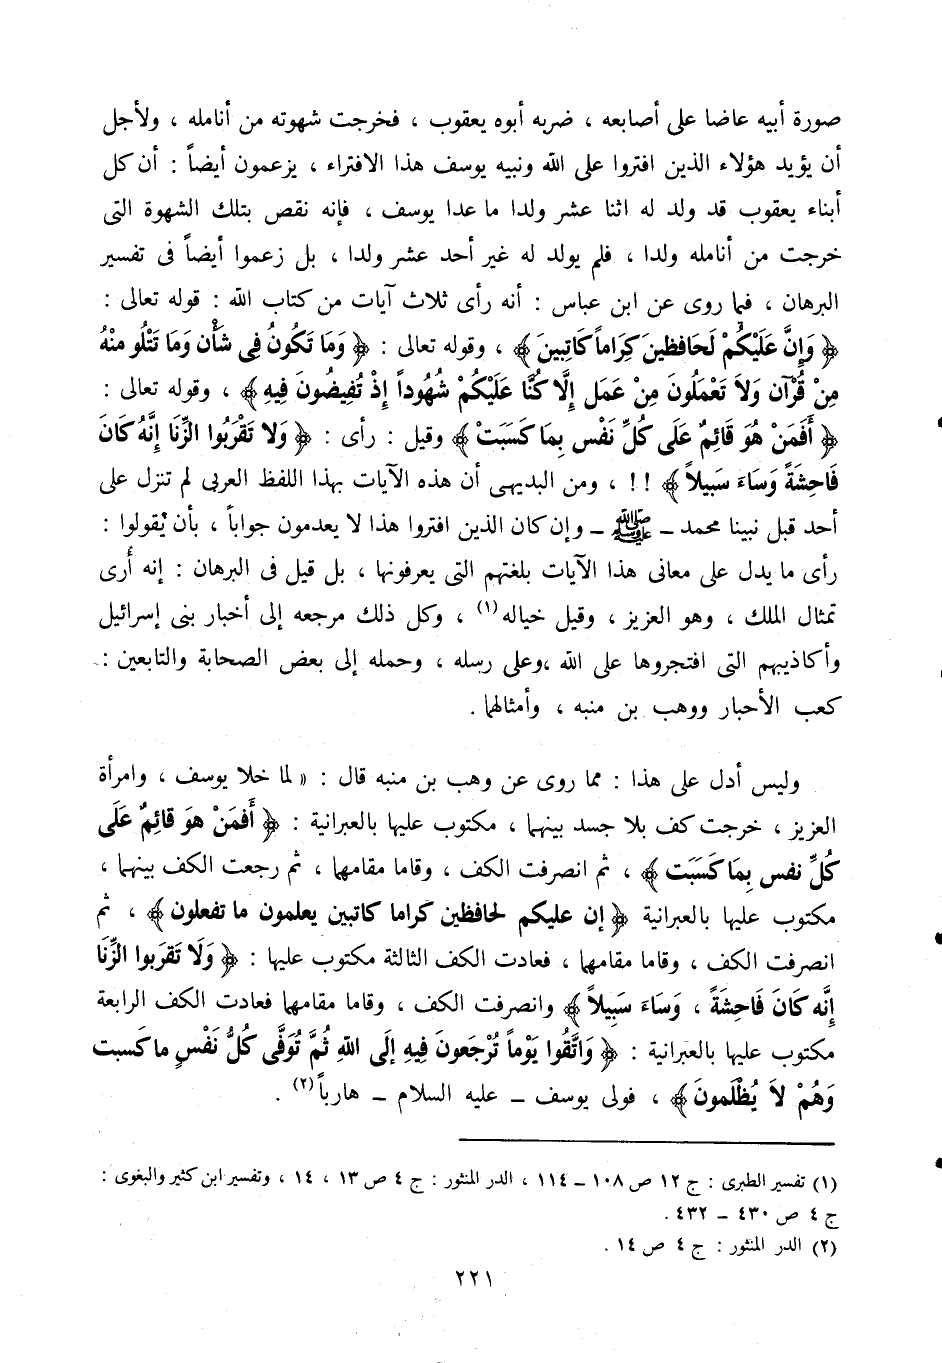 صورة أبيه عاضا على أصابعه ، ضربه أبوه يعقوب ، فخرجت شهوته من أنامله ، ولأجل
أن يؤيد هؤلاء الذين افتروا على الله ونبيه يوسف هذا الافتراء ، يزعمون أيضاً : أن كل
أبناء يعقوب قد ولد له اثنا عشر ولدا ما عدا يوسف ، فإنه نقص بتلك الشهوة التى
خرجت من أنامله ولدا ، فلم يولد له غير أحد عشر ولدا ، بل زعموا أيضاً فى تفسير
البرهان ، فيما روى عن ابن عباس : أنه رأى ثلاث آيات من كتاب الله : قوله تعالى :
﴿ وَإِنَّ عَلَيْكُمْ لَحَافِظِينَ كِرَاماً كَاتِبِينَ ﴾ ، وقوله تعالى : ﴿ وَمَا تَكُونُ فِى شَأْن وَمَا تَتْلُو مِنْهُ
مِنْ قُرْآن وَلاَ تَعْمَلُونَ مِنْ عَمَل إِلَّا كُنَّا عَلَيْكُمْ شُهُوداً إِذْ تُفِيضُونَ فِيهِ ﴾ ، وقوله تعالى :
﴿ أَفَمَنْ هُوَ قَائِمٌ عَلَى كُلِّ نَفْس بِمَا كَسَبَتْ ﴾ وقيل : رأى : ﴿ وَلا تَقْرَبُوا الزِّنَا إِنَّهُ كَانَ
فَاحِشَةً وَسَاءَ سَبِيلاً ﴾ !! ، ومن البديهى أن هذه الآيات بهذا اللفظ العربى لم تنزل على
أحد قبل نبينا محمد ـ ﷺ ـ وإن كان الذين افتروا هذا لا يعدمون جواباً ، بأن يقولوا :
رأى ما يدل على معانى هذا الآيات بلغتهم التى يعرفونها ، بل قيل فى البرهان : إنه أُرى
تمثال الملك ، وهو العزيز ، وقيل خياله (١) ، وكل ذلك مرجعه إلى أخبار بنى إسرائيل
وأكاذيبهم التى افتجروها على الله ،وعلى رسله ، وحمله إلى بعض الصحابة والتابعين :
كعب الأحبار ووهب بن منبه ، وأمثالهما .
وليس أدل على هذا : مما روى عن وهب بن منبه قال : « لما خلا يوسف ، وامرأة
العزيز ، خرجت كف بلا جسد بينهما ، مكتوب عليها بالعبرانية : ﴿ أَفَمَنْ هوَ قائِمٌ عَلَى
كُلِّ نفس بِمَا كَسَبَت ﴾ ، ثم انصرفت الكف ، وقاما مقامهما ، ثم رجعت الكف بينهما ،
مكتوب عليها بالعبرانية ﴿ إن عليكم لحافظين كراما كاتبين يعلمون ما تفعلون ﴾ ، ثم
انصرفت الكف ، وقاما مقامهما ، فعادت الكف الثالثة مكتوب عليها : ﴿ وَلَا تَقرَبوا الزِّنَا
إِنَّه كَانَ فَاحِشَةً ، وَسَاءَ سَبِيلاً ﴾ وانصرفت الكف ، وقاما مقامهما فعادت الكف الرابعة
مكتوب عليها بالعبرانية : ﴿ وَاتَّقُوا يَوْماً تُرْجَعونَ فِيهِ إِلَى اللهِ ثُمَّ تُوَفَّى كُلُّ نَفْسٍ ما كَسبت
وَهُمْ لاَ يُظْلَمونَ ﴾ ، فولى يوسف ـ عليه السلام ـ هارباً (٢) .
(١) تفسير الطبرى : ج ١٢ ص ١٠٨ ـ ١١٤ ، الدر المنثور : ج ٤ ص ١٣ ، ١٤ ، وتفسير ابن كثير والبغوى :
ج ٤ ص ٤٣٠ ـ ٤٣٢ .
(٢) الدر المنثور : ج ٤ ص ١٤ .
٢٢١